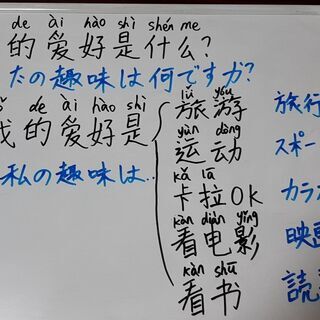 de ài hào shì shén me
的爱好是什么?
たの趣味は何ですか?
de ài hào shì
我的爱好是
私の趣味は..
lǚ yóu
旅游 旅行
yùn dòng
运动 スポー
kǎ lā
卡拉OK カラ
kàn diàn yǐng
看电影 映画
kàn shū
看书 読